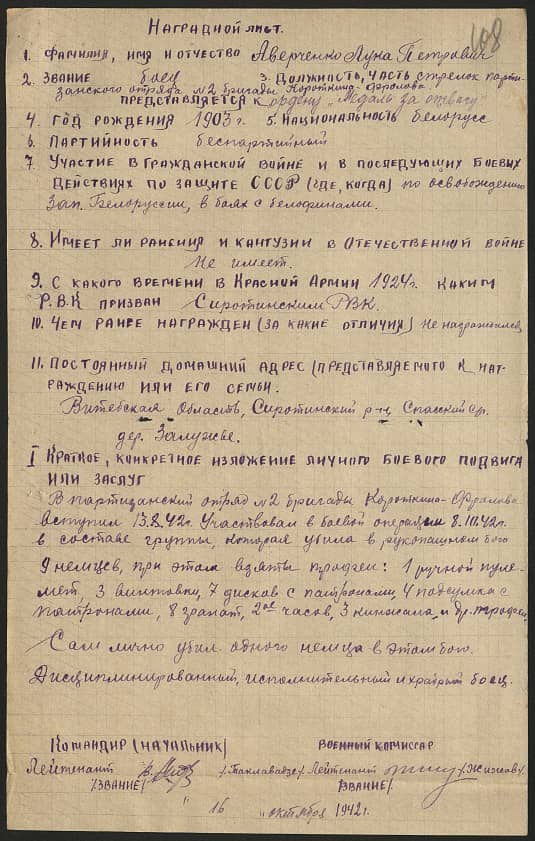 108
Наградной лист.
1. Фамилия, имя и отчество Аверченко Лука Петрович
2. Звание боец 3. Должность, часть стрелок парти-
занского отряда №2 бригады Короткина-Фралова
представляется к ордену „Медаль за отвагу"
4. Год рождения 1903 г. 5. Национальность белорусс
6. Партийность беспартийный
7. Участие в гражданской войне и в последующих боевых
действиях по защите СССР (где, когда) по освобождению
Зап. Белоруссии, в боях с белофинами.
8. Имеет ли ранения и кантузии в Отечественной войне
Не имеет.
9. С какого времени в Красной Армии 1924 г. каким
Р.В.К призван Сиротинским РВК.
10. Чем ранее награжден (за какие отличия) Не награжался
11. Постоянный домашний адрес (представляемого к наг-
раждению или его семьи.
Витебская область, Сиротинский р-н, Спасский с/с.
дер. Залужье.
I Краткое, конкретное изложение личного боевого подвига
или заслуг
В партизанский отряд №2 бригады Короткина-Фралова
вступил 13.8.42г. Участвовал в боевой операции 8.10.42г.
в составе группы, которая убила в рукопашном бою
9 немцев, при этом взяты трофеи: 1 ручной пуле-
мет, 3 винтовки, 7 дисков с патронами, 4 подсумка с
патронами, 8 гранат, 2ое часов, 3 кинжала, и др. трофеи.
Сам лично убил одного немца в этом бою.
Дисциплинированный, исполнительный и храбрый боец.
Командир (начальник) Военный комиссар
Лейтенант /Таклавадзе/ Лейтенант /Жижов/
/звание/ /звание/
„ 16 „ октября 1942г.